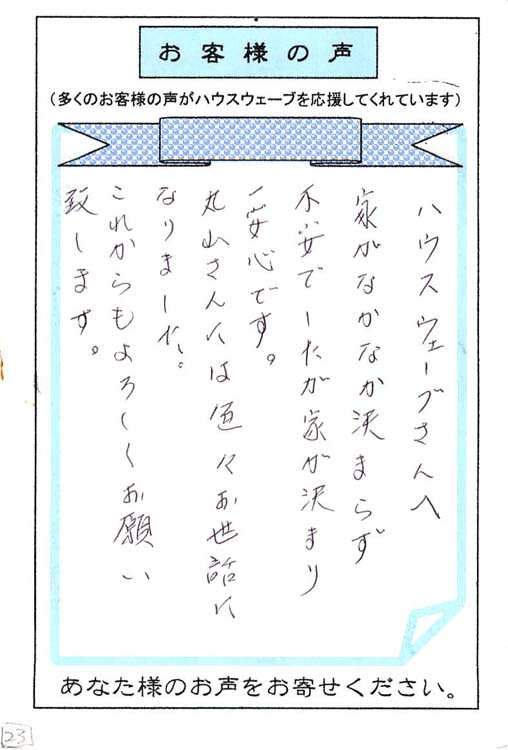 お客様の声
（多くのお客様の声がハウスウェーブを応援してくれています）
ハウスウェーブさんへ
家がなかなか決まらず
不安でしたが家が決まり
一安心です。
丸山さんには色々お世話に
なりました。
これからもよろしくお願い
致します。
あなた様のお声をお寄せください。
23